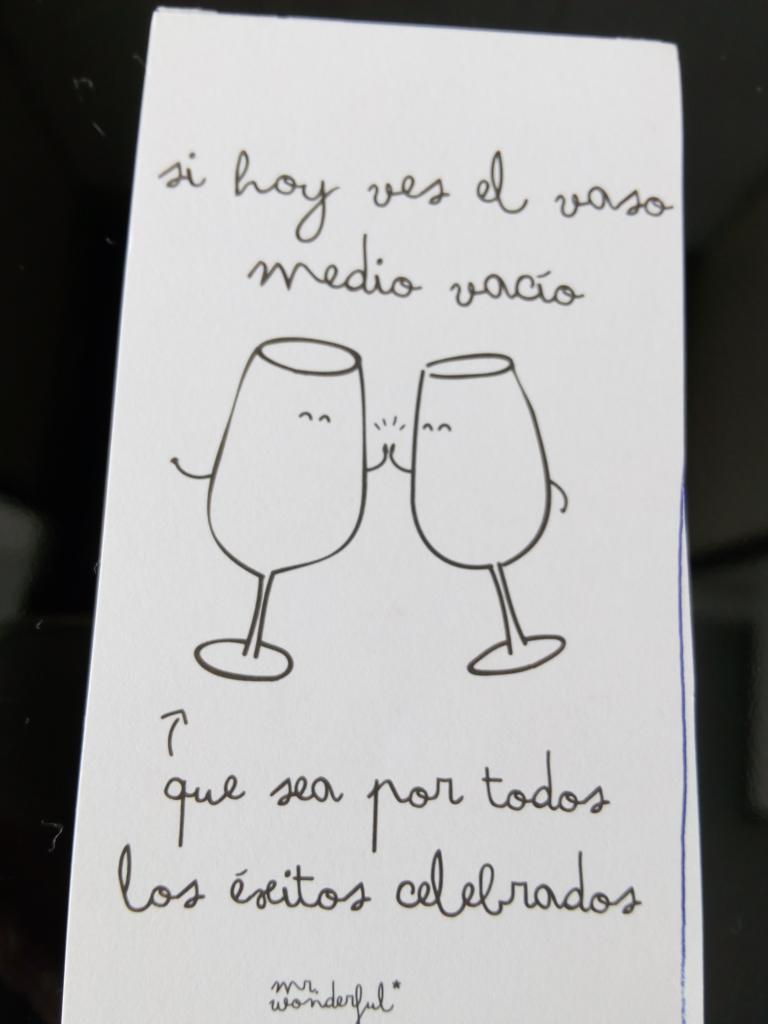 si hoy ves el vaso
medio vacío
que sea por todos
los éxitos celebrados
mr.
wonderful*